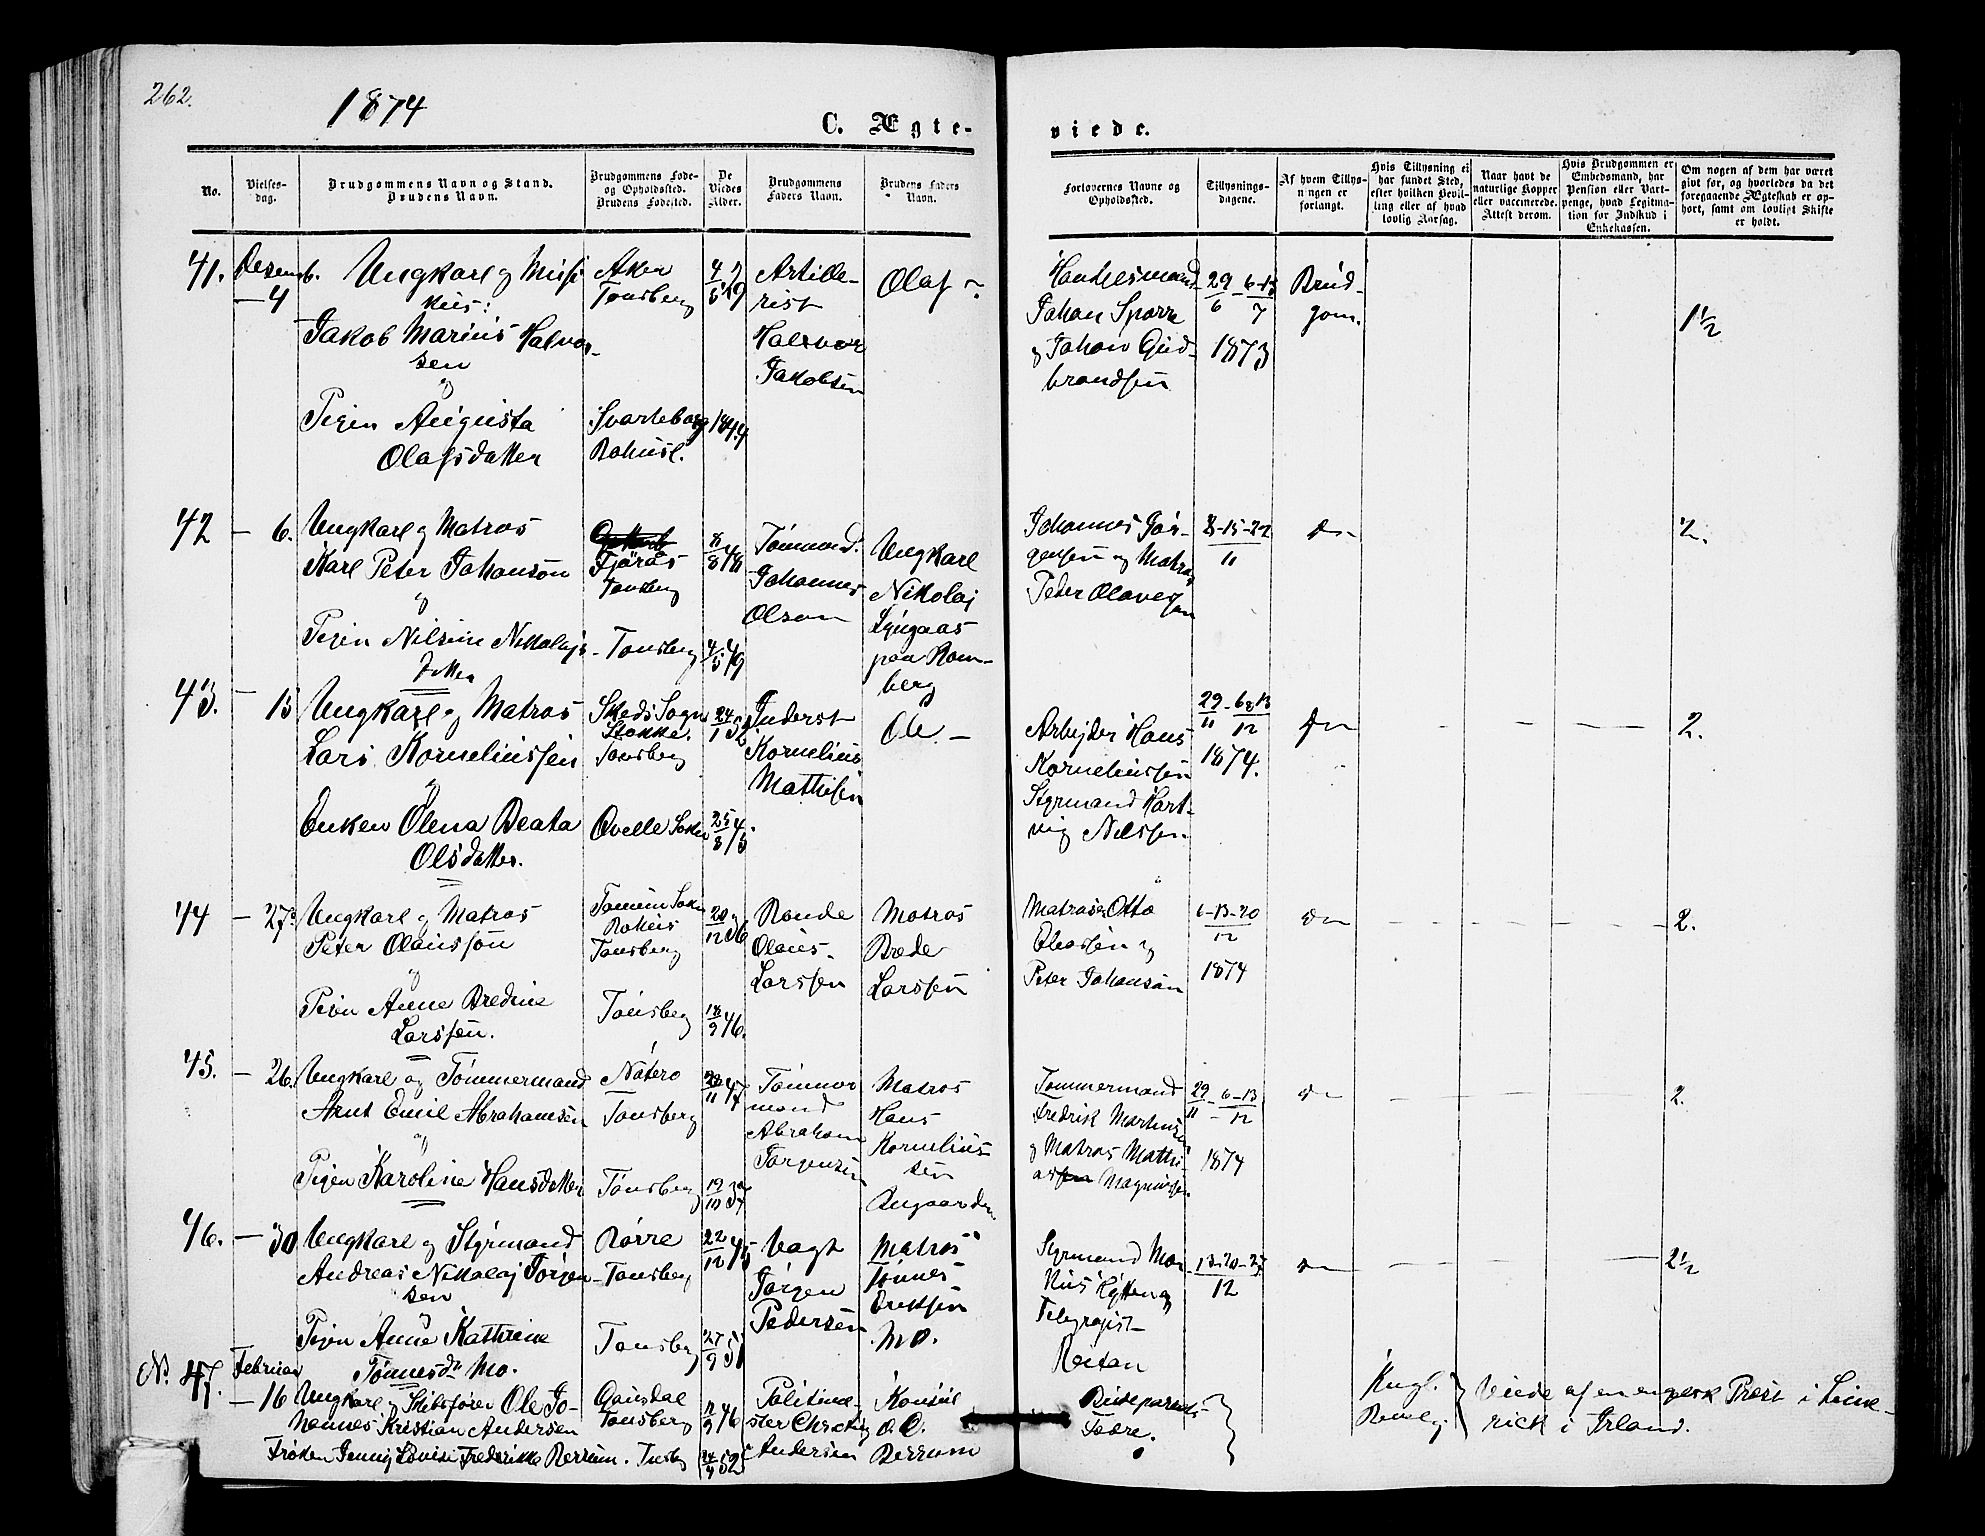 262.
1874
C. Ægte-
viede.
No.
Vielses-
dag.
Brudgommens Navn og Stand.
Brudens Navn.
Brudgommens Føde-
og Opholdssted.
Brudens Fødested.
De
Viedes
Alder.
Brudgommens
Faders Navn.
Brudens Faders
Navn.
Forlovernes Navne og
Opholdssted.
Tillysnings-
dagene.
Af hvem Tillys-
ningen er
forlangt.
Hvis Tillysning ei
har fundet Sted,
efter hvilken Bevil-
ling eller af hvad
lovlig Aarsag.
Naar havt de
naturlige Kopper
eller vaccinerede.
Attest derom.
Hvis Brudgommen er
Embedsmand, har
Pension eller Vart-
penge, hvad Legitima-
tion for Indskud i
Enkekassen.
Om nogen af dem har været
gift før, og hvorledes da det
foregaaende Ægteskab er op-
hørt, samt om lovligt Skifte
er holdt.
41.
Desemb.
- 4
Ungkarl og Musi
kus:
Jakob Marius Halvor-
sen
og
Pigen Augusta
Olafsdatter
Aker
Tønsberg
Svarteborg
Bohusl.
1844
Artille-
rist
Halvor
Jakobsen
Olaf ?
Handelsmand
Johan Sporre
og Johan Gud-
brandsen
29/6 - 6-13/7
1873
Brud-
gom.
1½
42
- 6.
Ungkarl og Matros
Karl Peter Johanson
og
Pigen Nilsine Nikolajs-
dtter
Fjärås
Tønsberg
Tønsberg
4/5 49
Tømmermd.
Johannes
Olson
Ungkarl
Nikolaj
Lyngaas
paa Ram-
berg
Johannes Jør-
gensen og Matros
Peder Olavesen
8-15-22/11
2.
43.
- 13
Ungkarl og Matros
Lars Korneliussen
og
Enken Olena Beata
Olsdatter.
Skeds Sogn
Stokke.
Tønsberg
Qvelle Sokn
24/1 52
25/8 45
Inderst
Kornelius
Mathisen
Ole. -
Arbejder Hans
Korneliussen
Styrmand Hart-
vig Nilssen.
29/11 - 6 & 13/12
1874.
2.
44
- 27
Ungkarl og Matros
Peter Olausson
og
Pigen Anne Bredine
Larssen.
Tanum Sokn
Bohus
Tønsberg
Tønsberg
18/9 46.
Bonde
Olaus
Larssen
Matros
Brede
Larssen
Matros Otto
og
Peter Johanson
6-13-20/12
1874
2.
45.
- 26.
Ungkarl og Tømmermand
Arnt Emil Abrahamsen
og
Pigen Karoline Hansdatter
Nøterø
Tønsberg
Tønsberg
Tømmer
mand
Abraham
Jørgensen
Matros
Hans
Kornelius-
sen
Tømmermand
Fredrik Martinsen
og Matros Mathi
as Magnussen
29/11 - 6-13/12
1874
2.
46.
- 30
Ungkarl og Styrmand
Andreas Nikolaj Jørgen-
sen
og
Pigen Anne Kathrine
Tønnesdtr Mo.
Borre
Tønsberg
Tønsberg
22/12 45
27/9 51
Vagt
Jørgen
Pedersen
Matros
Tønnes
Eriksen
Mo.
Styrmand Mar-
kus Hytten og
Telegrafist
Reitan
13-20-27/12
2½
No 47.
Februar
- 16
Ungkarl og Skibsfører Ole Jo-
hannes Kristian Andersen
Frøken Jenny Lovise Fredrikke Berrum.
Gausdal
Tønsberg
Tønsbg
Politime-
ster Christian
Andersen
Konsul
O. O.
Berrum
Brudeparrets
Fædre.
Kngl.
Bevilg
Viede af en engelsk Præst i Lime-
rick i Irland.